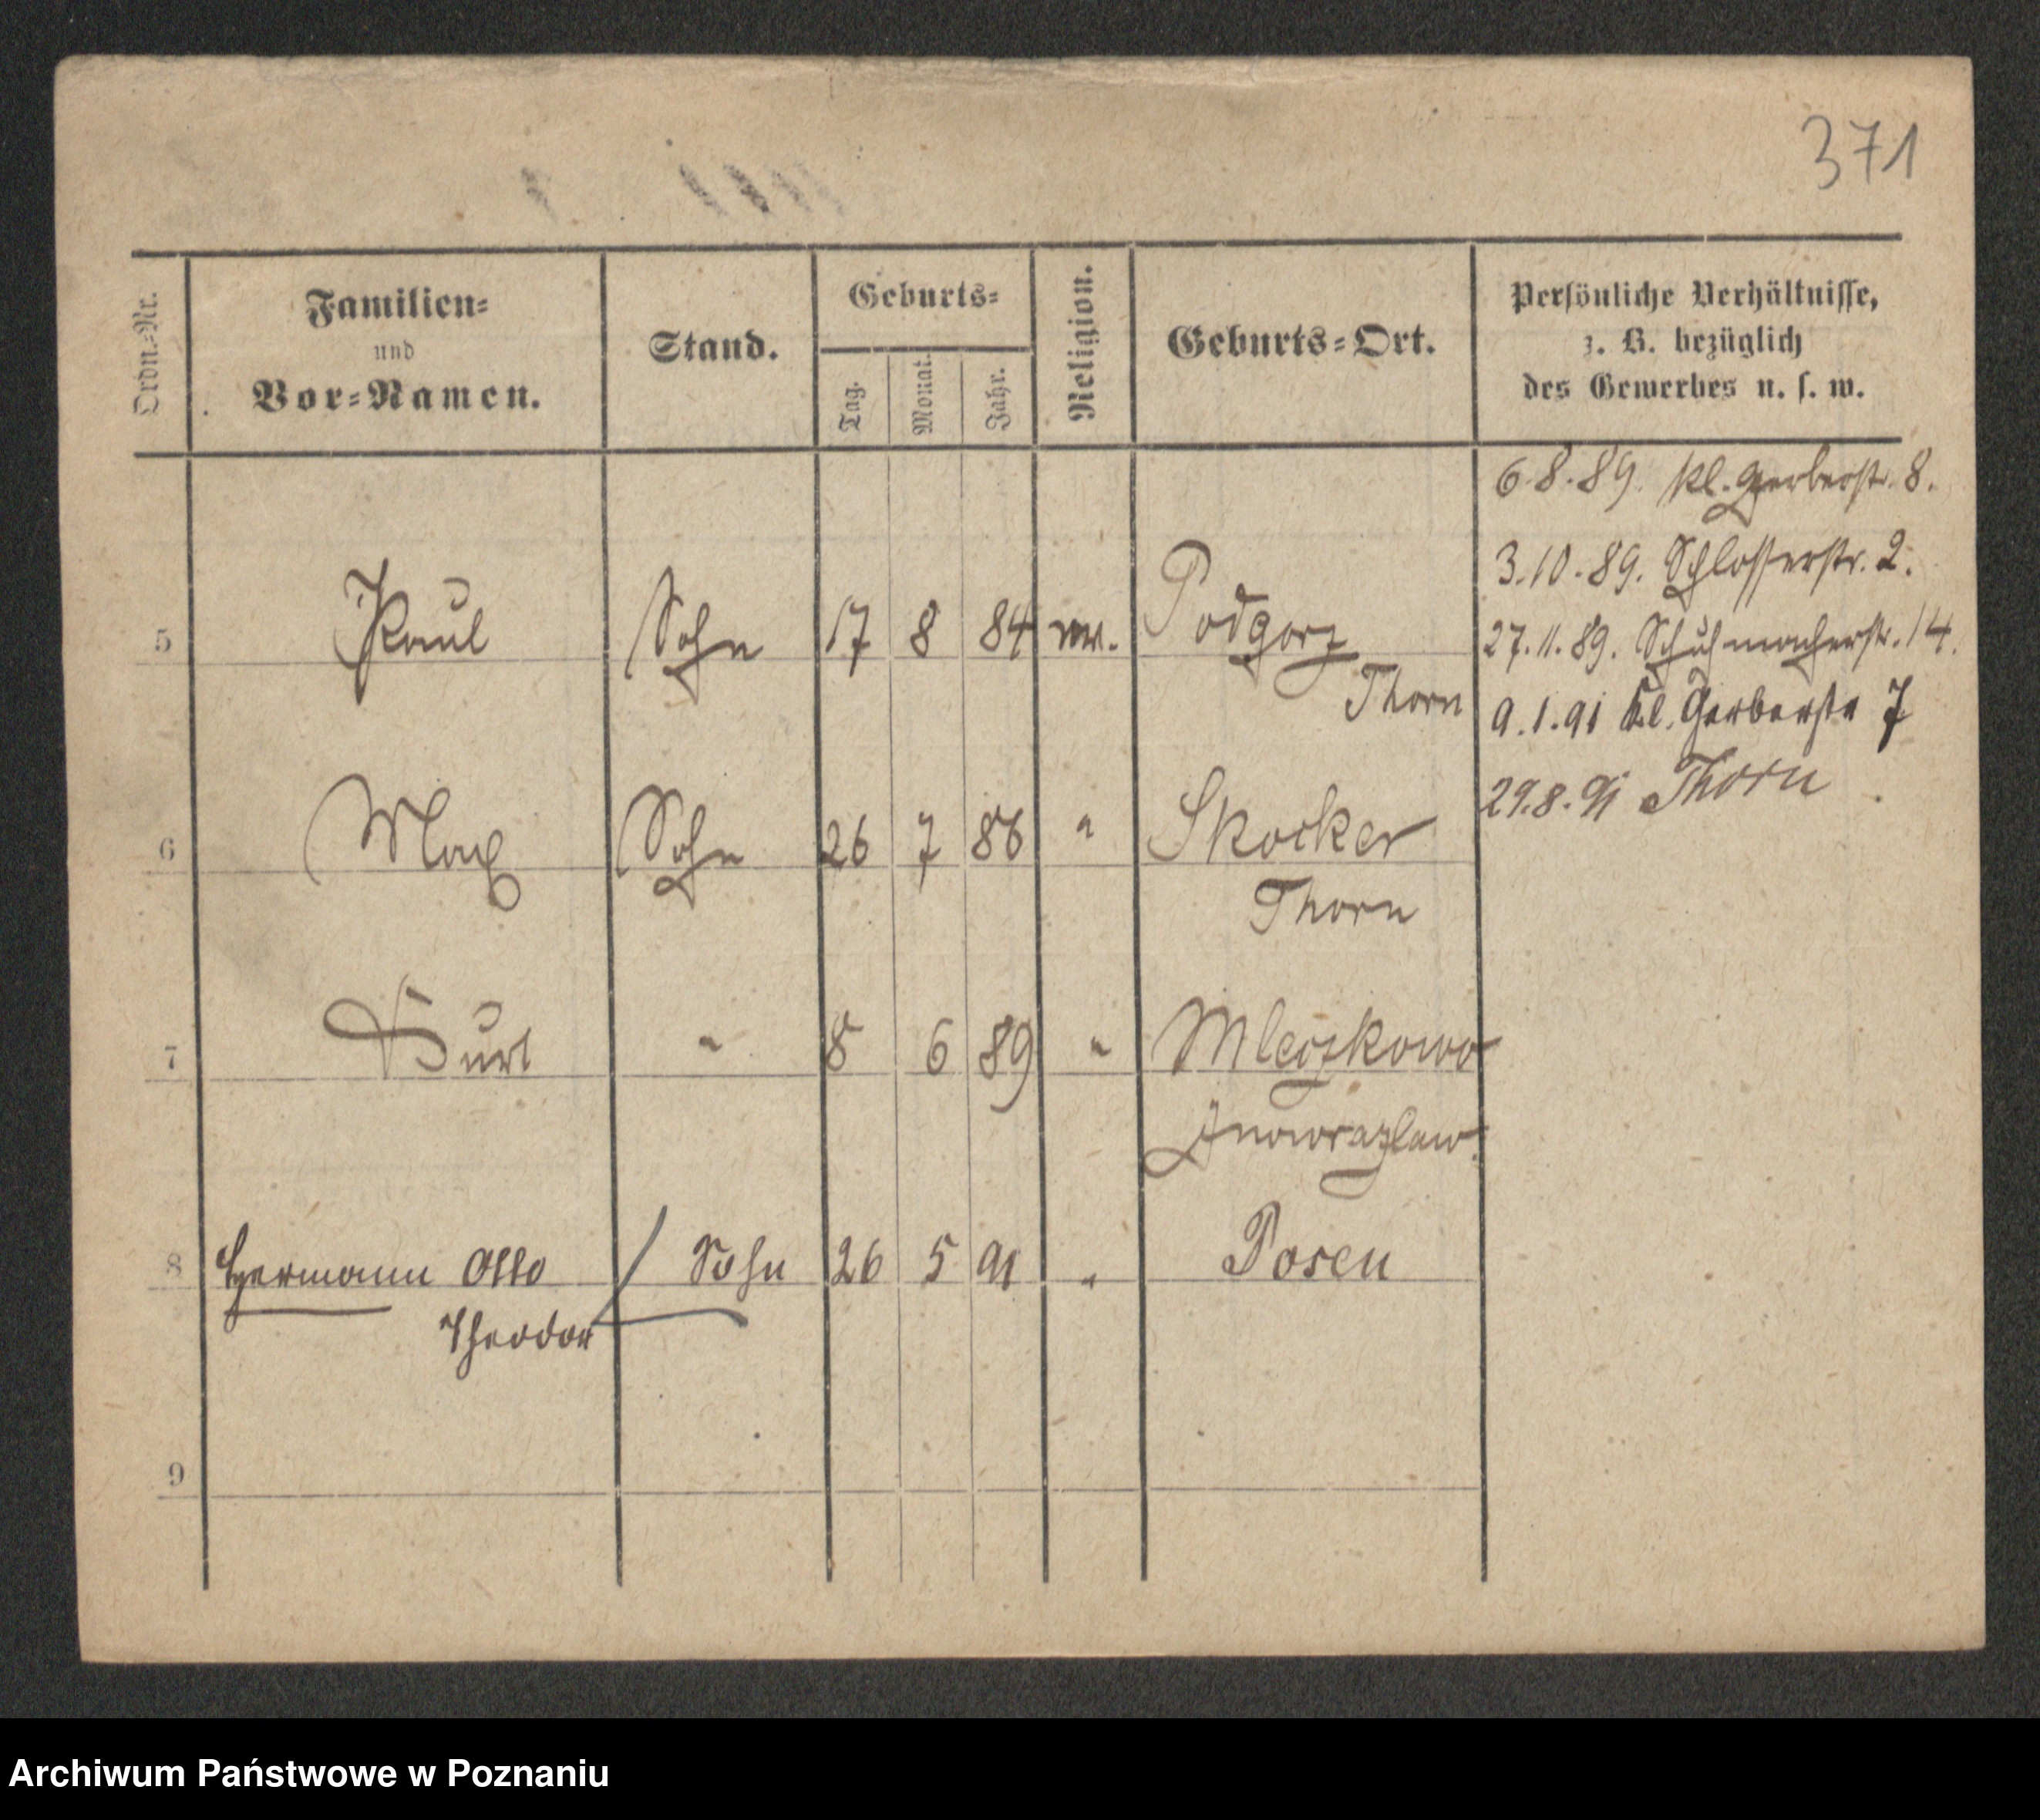 371
Ordn.-Nr. Familien- und Vor-Namen. Stand. Geburts- Tag. Monat. Jahr. Religion. Geburts-Ort. Persönliche Verhältnisse, z. B. bezüglich des Gewerbes u. s. w.
6.8.89. Kl. Gerberstr. 8.
3.10.89. Schlosserstr. 2.
5 Paul Sohn 17 8 84 ev. Podgorz 27.11.89. Schuhmacherstr. 14.
Thorn 9.1.91 Kl. Gerberstr 7
29.8.91 Thorn
6 Max Sohn 26 7 86 " Skocker
Thorn
7 Kurt " 8 6 89 " Mleczkowo
Inowrazlaw.
8 Hermann Otto Sohn 26 5 91 " Posen
Theodor
9
Archiwum Państwowe w Poznaniu